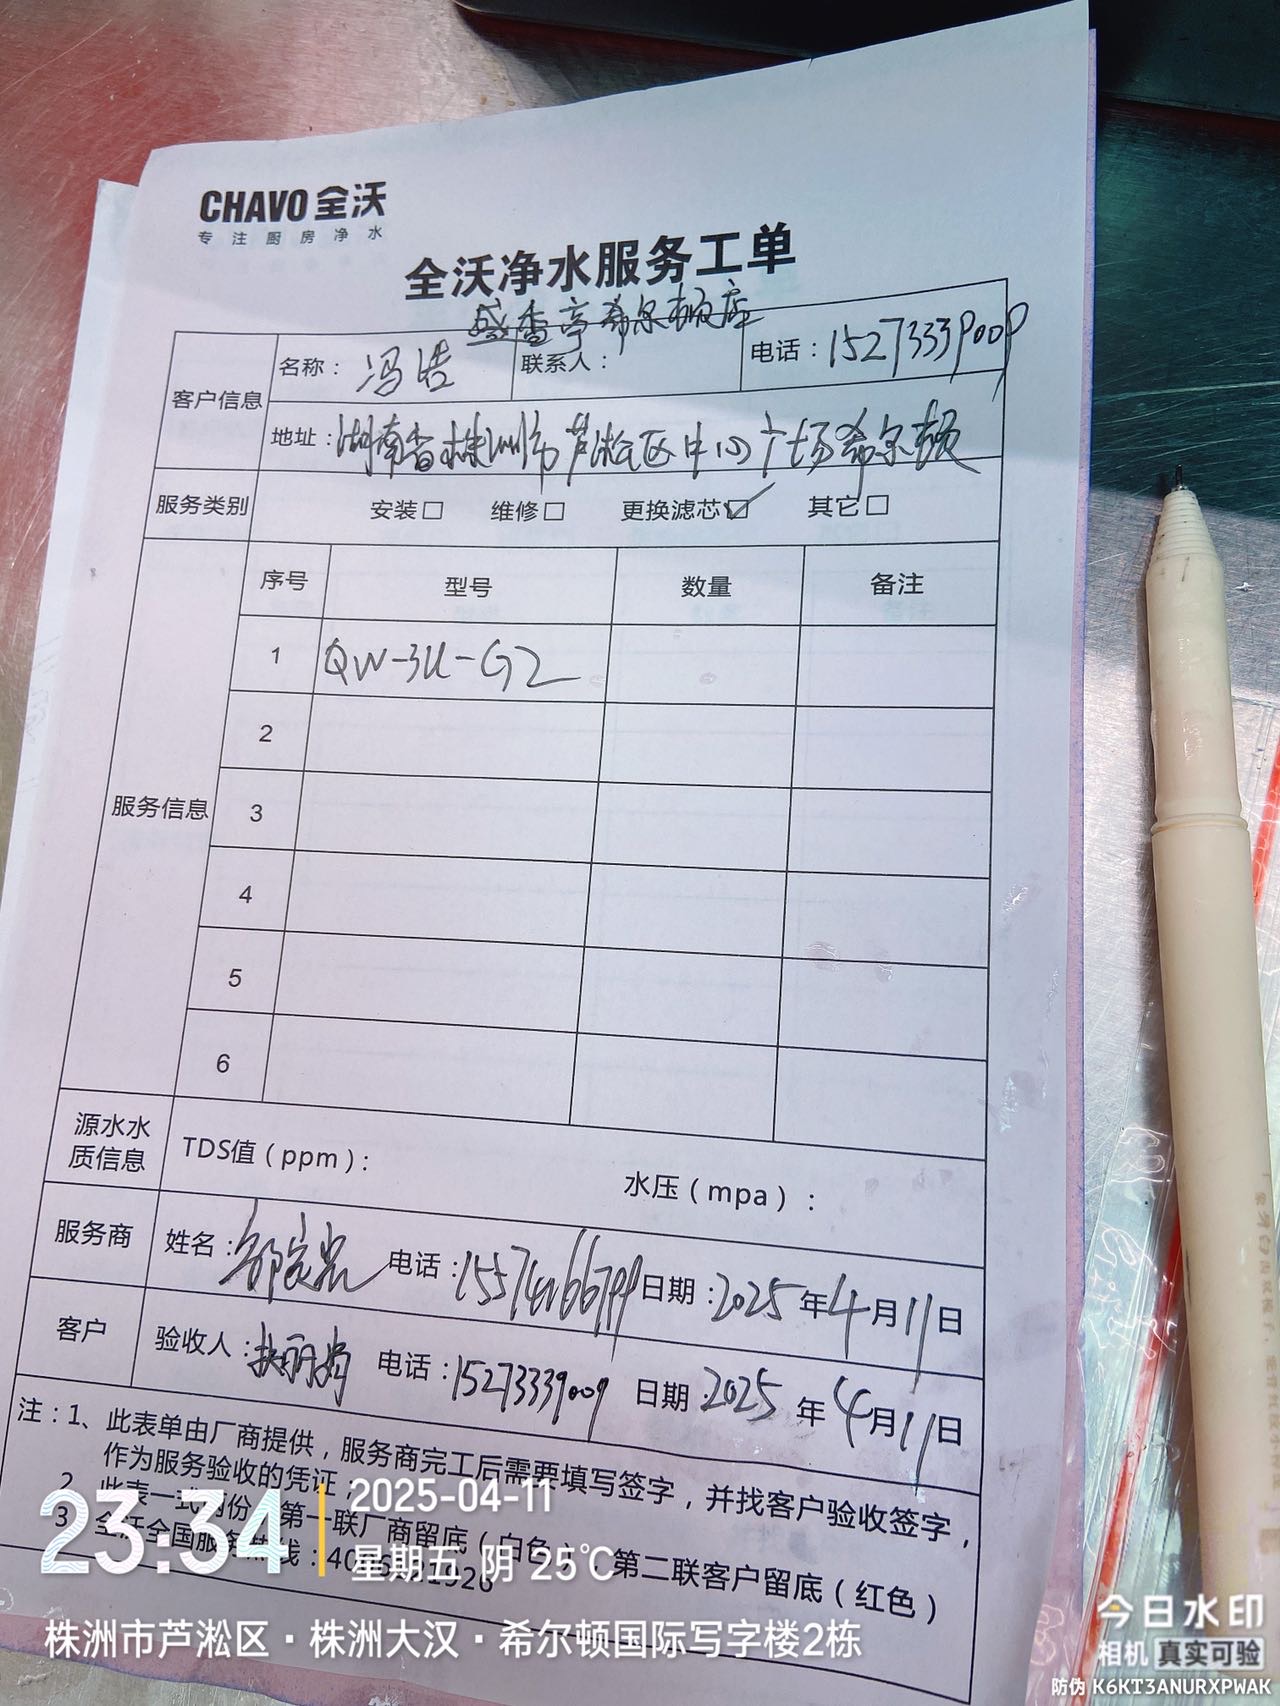 CHAVO 全沃
专注厨房净水
全沃净水服务工单
盛香亭希尔顿店
客户信息
名称：冯浩 联系人： 电话：15273339009
地址：湖南省株洲市芦淞区中心广场希尔顿
服务类别 安装□ 维修□ 更换滤芯☑ 其它□
服务信息
序号 型号 数量 备注
1 QW-3U-G2
2
3
4
5
6
源水水质信息 TDS值（ppm）： 水压（mpa）：
服务商 姓名： 电话： 日期：2025年4月11日
客户 验收人： 电话：15273339009 日期：2025年4月11日
注：1、此表单由厂商提供，服务商完工后需要填写签字，并找客户验收签字，
作为服务验收的凭证；
2、此表一式两份，第一联厂商留底（白色），第二联客户留底（红色）
3、全沃全国服务热线：
23:34
2025-04-11
星期五 阴 25℃
株洲市芦淞区·株洲大汉·希尔顿国际写字楼2栋
今日水印
相机 真实可验
防伪 K6KT3ANURXPWAK